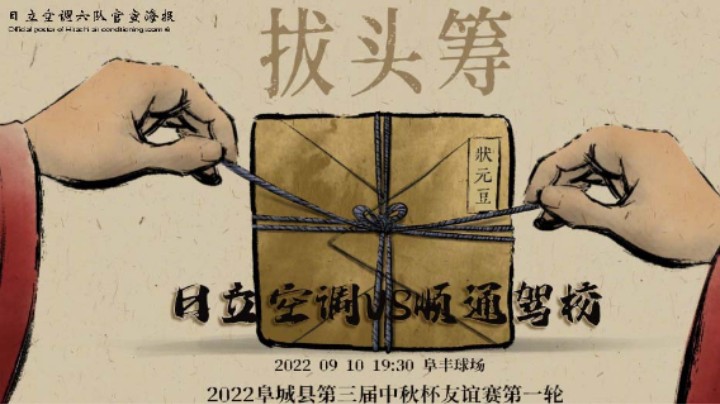 日立空调六队官宣海报
Official poster of Hitachi air conditioning team 6
拔头筹
狀元豆
日立空调VS顺通驾校
2022 09 10 19:30 阜丰球场
2022阜城县第三届中秋杯友谊赛第一轮